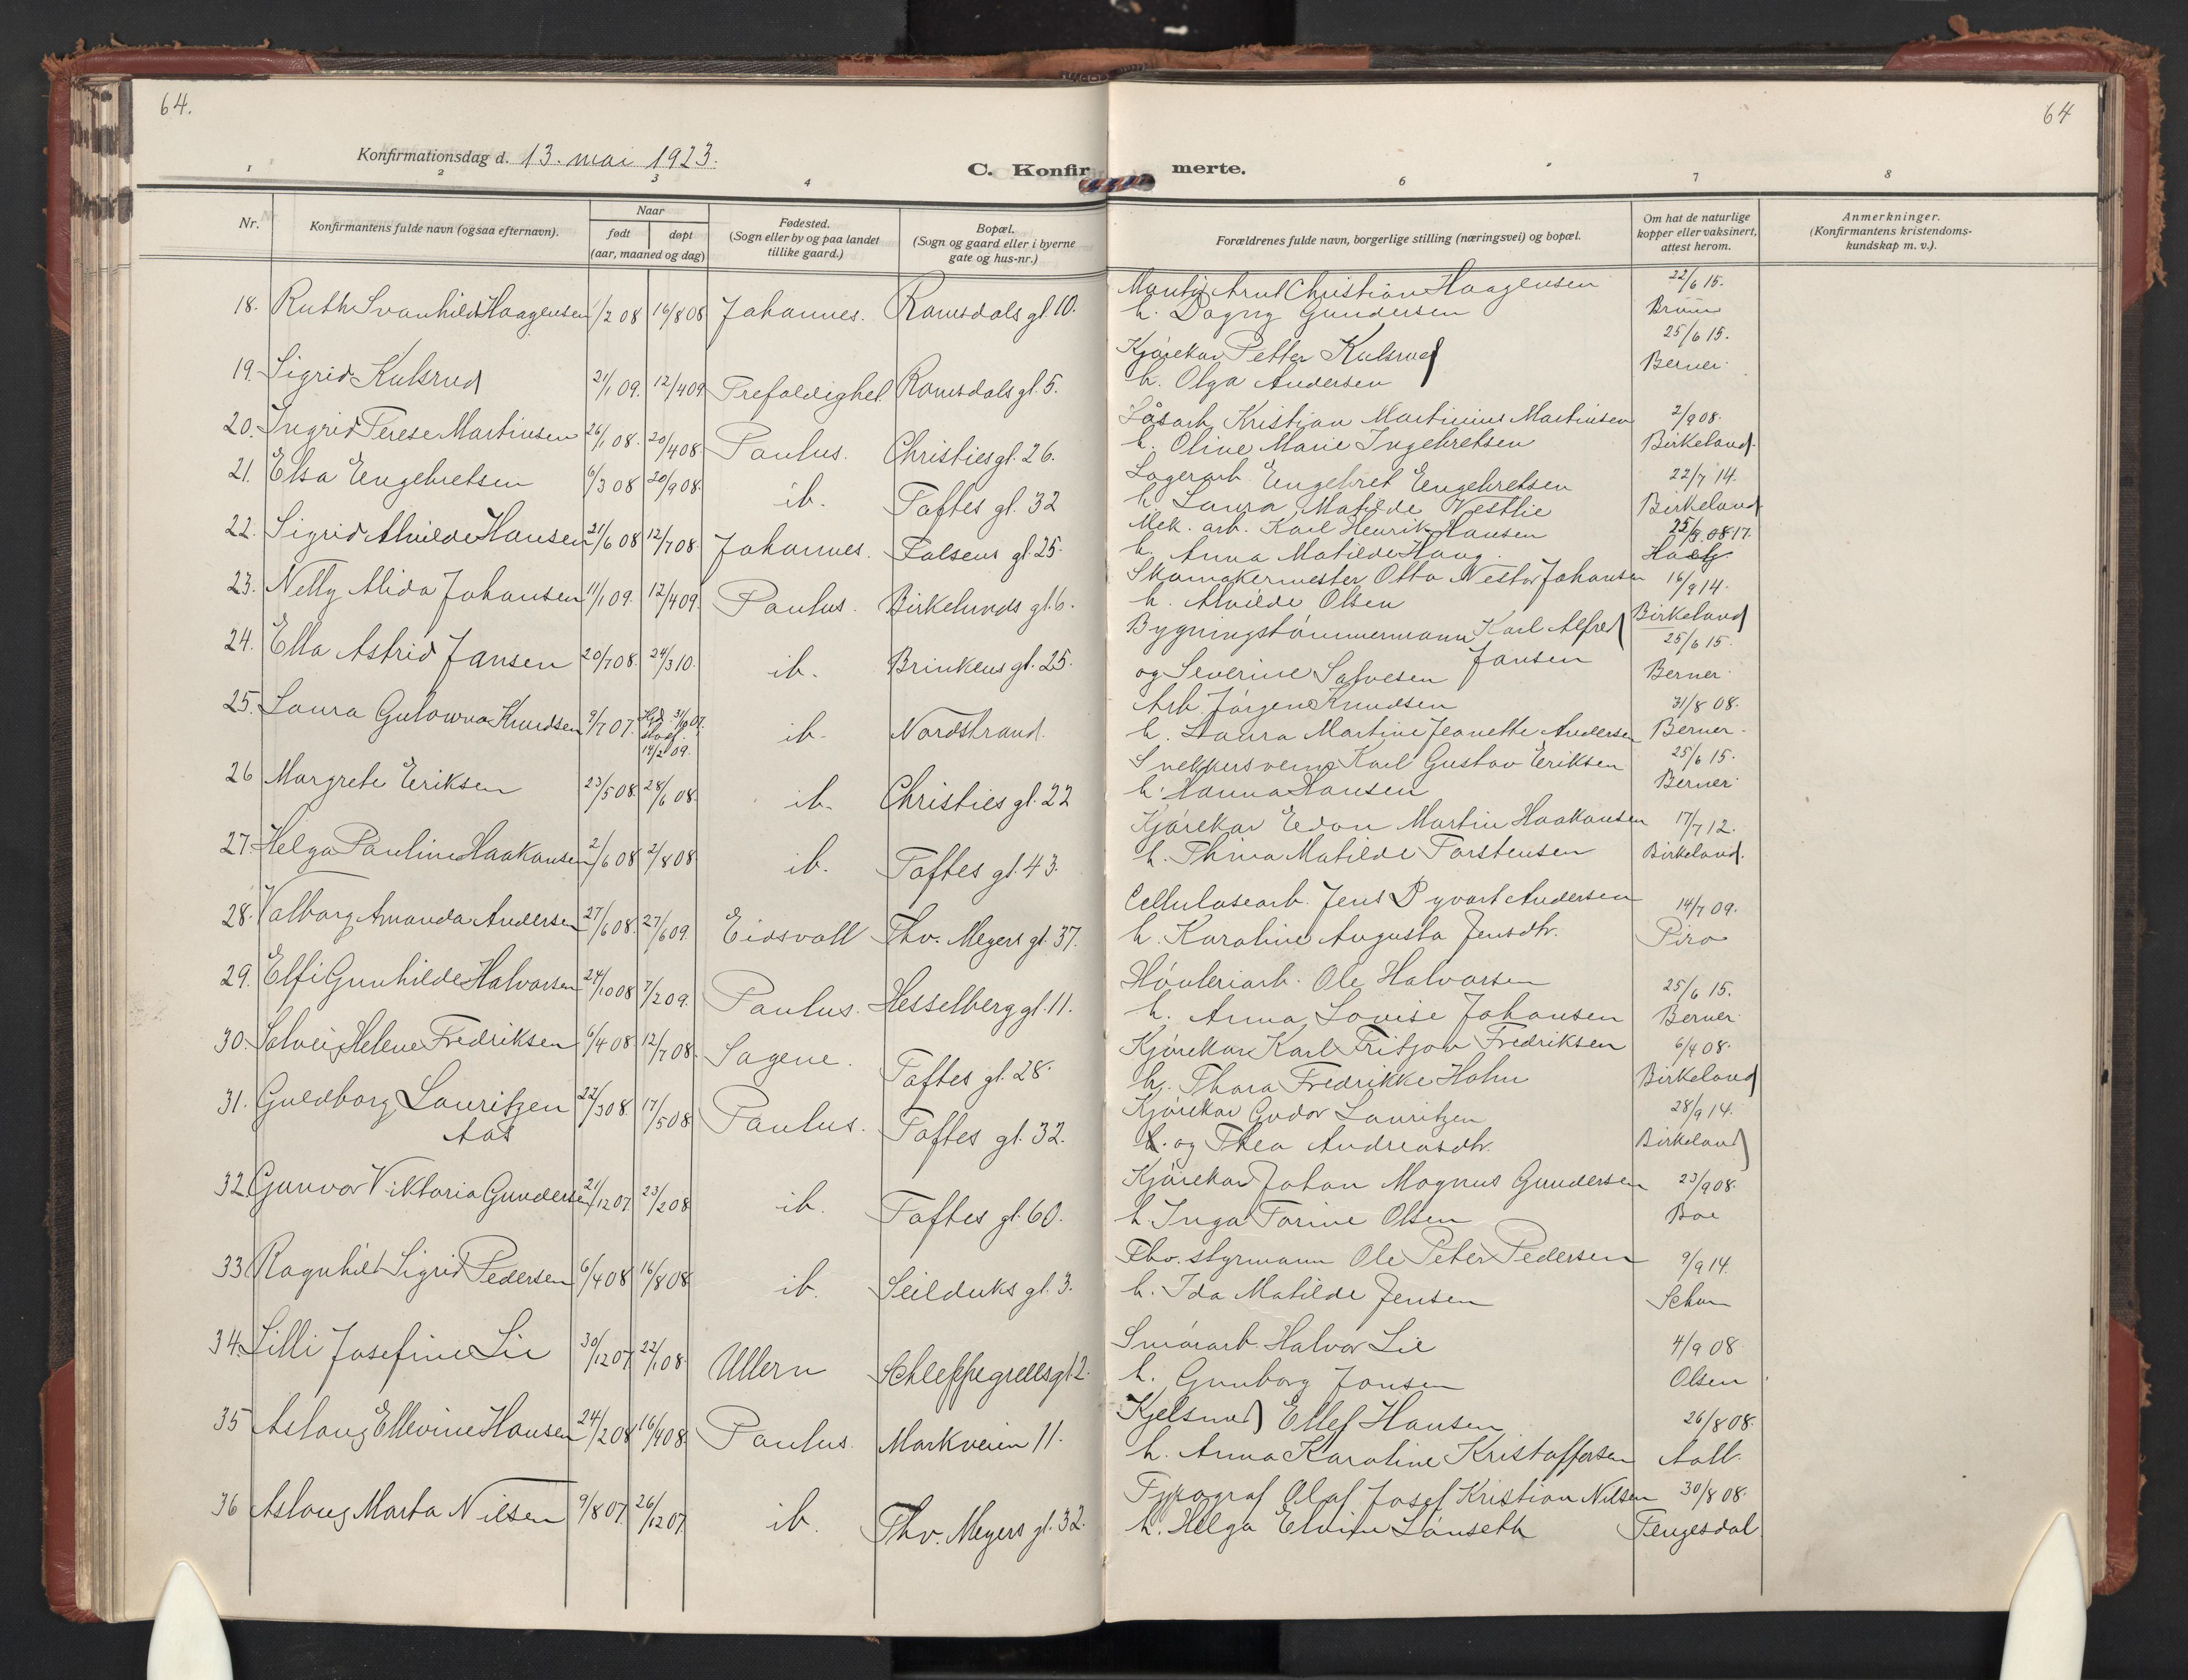 64.
64
Konfirmationsdag d. 13. mai 1923.
C. Konfirmerte.
1 2 3 4 6 7 8
Nr.
Konfirmantens fulde navn (ogsaa efternavn).
Naar
født døpt
(aar, maaned og dag)
Fødested.
(Sogn eller by og paa landet
tillike gaard.)
Bopæl.
(Sogn og gaard eller i byerne
gate og hus-nr.)
Forældrenes fulde navn, borgerlige stilling (næringsvei) og bopæl.
Om hat de naturlige
kopper eller vaksinert,
attest herom.
Anmerkninger.
(Konfirmantens kristendoms-
kundskap m. v.).
18. Ruth Svanhild Haagensen 1/2 08 16/8 08 Johannes. Romsdals gt. 10. Arnt Christian Haagensen 22/6 15.
h. Dagny Gundersen Bruun
19. Sigrid Kulsrud 21/1 09. 12/4 09 Trefoldighet Romsdals gt. 5. Kjørekar Petter Kulsrud 25/6 15.
h. Olga Andersen Berner
20. Ingrid Terese Martinsen 26/1 08. 20/4 08 Paulus. Christies gt. 26. Kristian Martinius Martinsen 2/9 08.
h. Oline Marie Ingebretsen Birkeland
21. Elsa Engebretsen 6/3 08 20/9 08. ib. Toftes gt. 32 Lagerarb. Engebret Engebretsen 22/7 14.
h. Laura Matilde Vestlie Birkeland
22. Sigrid Alvilde Hansen 21/6 08 12/7 08 Johannes. Falsens gt 25. Mek. arb. Karl Henrik Hansen
h. Anna Matilde Haug
23. Nelly Alida Johansen 11/1 09. 12/4 09. Paulus. Birkelunds gt. 6. Skomakermester Otto Nestor Johansen 16/9 14.
h. Alvilde Olsen Birkeland
24. Ella Astrid Jansen 20/7 08. 24/3 10. ib. Brinkens gt. 25. Bygningstømmermann Karl Alfred Jansen 25/6 15.
og Severine Salvesen Berner
25. Laura Gulowna Knudsen 9/7 07. Hjd. 31/10 07. Stadf. 14/2 09. ib. Nordstrand. Arb. Jørgen Knudsen 31/8 08.
h. Laura Martine Jeanette Andersen Berner
26 Margrete Eriksen 23/5 08. 28/6 08. ib. Christies gt. 22 Snekkersvenn Karl Gustav Eriksen 25/6 15.
h. Hanna Hansen Berner
27. Helga Pauline Haakonsen 2/6 08 2/8 08 ib. Toftes gt. 43. Kjørekar Edon Martin Haakonsen 17/7 12.
h. Thina Matilde Torstensen Birkeland.
28. Valborg Amanda Andersen 27/6 08. 27/6 09. Eidsvoll Thv. Meyers gt. 37. Cellulosearb. Jens Andersen 14/7 09.
h. Karoline Augusta Jensdtr. Piro
29. Elfi Gunhilde Halvorsen 24/10 08 7/2 09. Paulus. Hesselberg gt. 11. Høvleriarb. Ole Halvorsen 25/6 15.
h. Anna Lovise Johansen Berner
30. Solveig Helene Fredriksen 6/4 08. 12/7 08 Sagene. Toftes gt. 28. Kjørekar Karl Fritjov Fredriksen 6/9 08.
h. Thora Fredrikke Holm Birkeland
31. Guldborg Lauritzen Aas 22/3 08. 17/5 08 Paulus. Toftes gt. 32. Kjørekar Gudor Lauritzen 28/9 14.
h. og Thea Andreasdtr. Birkeland
32. Gunvor Viktoria Gundersen 21/12 07. 23/2 08 ib. Toftes gt. 60. Kjørekar Johan Magnus Gundersen 23/9 08.
h. Inga Torine Olsen Boe
33 Ragnhild Sigrid Pedersen 6/4 08 16/8 08 ib. Seilduks gt. 3. Fhv. styrmann Ole Peter Pedersen 9/9 14.
h. Ida Matilde Jensen
34. Lilli Josefine Lie 30/12 07 22/1 08. Ullern Schleppegrells gt 2. Smørarb. Halvor Lie 4/9 08
h. Gunborg Jonsen Olsen
35 Aslaug Ellevine Hansen 24/2 08 16/4 08. Paulus. Markveien 11. Kjelsmed Ellef Hansen 26/8 08.
h. Anna Karoline Kristoffersen Aall.
36 Aslaug Marta Nilsen 9/8 07. 26/12 07 ib. Thv. Meyers gt. 32. Typograf Olaf Josef Kristian Nilsen 30/8 08.
h. Helga Elvine Lønseth Tengesdal